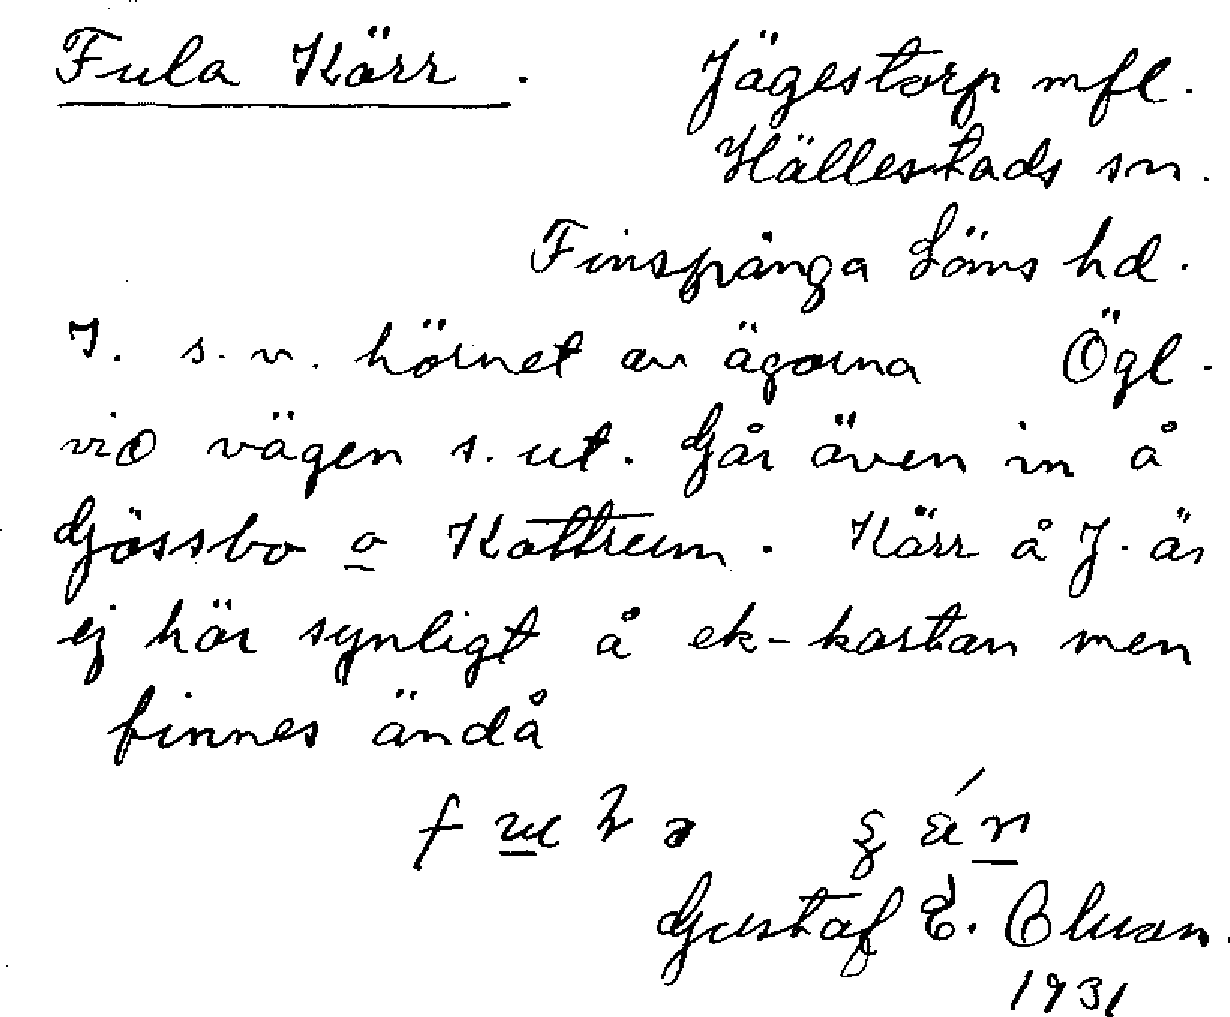 Fula Kärr.
Jägestorp mfl.
Hällestads sn.
Finspånga Läns hd.
I. s.v. hörnet av ägorna
Ögl.
vid vägen s. ut. Går även in å
Gössbo o Kattrum. Kärr å J. är
ej här synligt å ek-kartan men
finnes ändå
Gustaf E.
1931